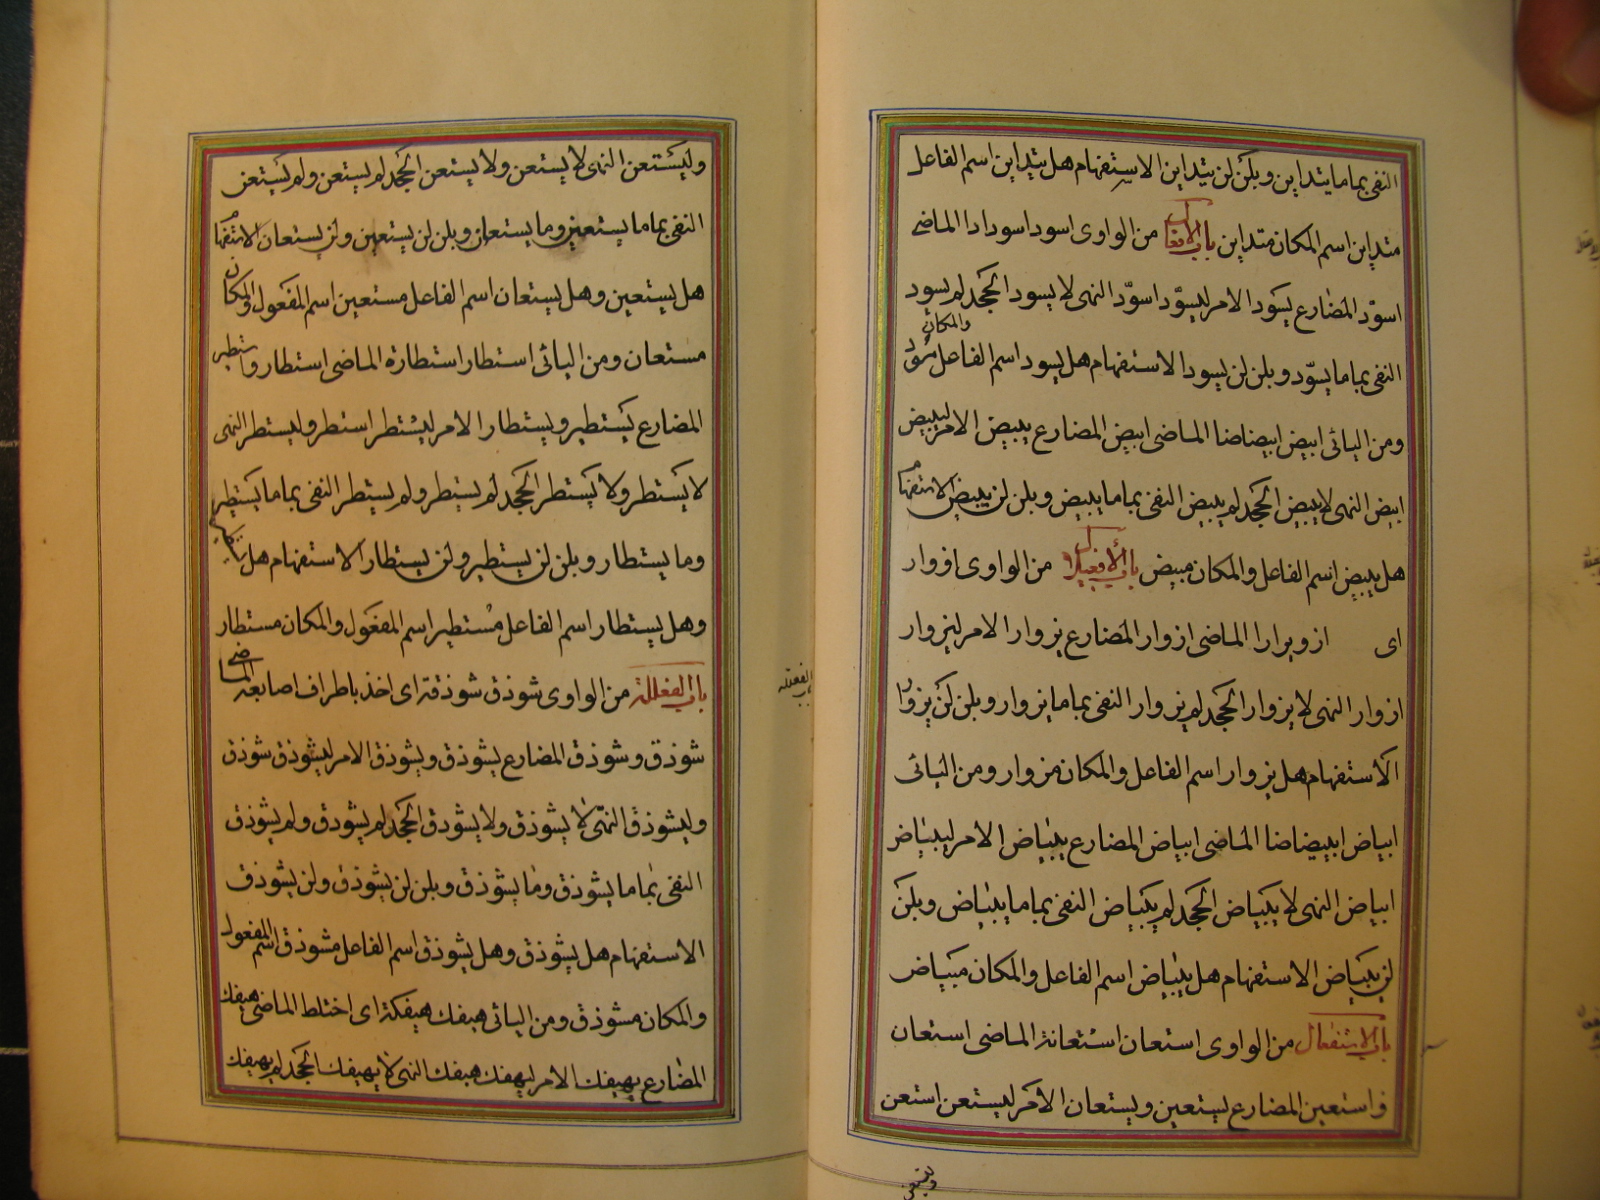 النفى بما ما يتداين وبلن لن يتداين الاستفهام هل يتداين اسم الفاعل
متداين اسم المكان متداين باب الافعلال من الواوى اسود اسودادا الماضى
اسوّد المضارع يسود الامر ليسوّد اسوّد النهى لا يسود الجحد لم يسود
والمكان
النفى بما ما يسوّد وبلن لن يسود الاستفهام هل يسود اسم الفاعل مسود
ومن اليائى ابيض ابيضاضا الماضى ابيض المضارع يبيض الامر ليبيض
ابيض النهى لا يبيض الجحد لم يبيض النفى بما ما يبيض وبلن لن يبيض الاستفهام
هل يبيض اسم الفاعل والمكان مبيض باب الافعيلال من الواوى ازوار
اى ازويرارا الماضى ازوار المضارع يزوار الامر ليزوار
ازوار النهى لا يزوار الجحد لم يزوار النفى بما ما يزوار وبلن لن يزوار
الاستفهام هل يزوار اسم الفاعل والمكان مزوار ومن اليائى
ابياض ابييضاضا الماضى ابياض المضارع يبياض الامر ليبياض
ابياض النهى لا يبياض الجحد لم يبياض النفى بما ما يبياض وبلن
لن يبياض الاستفهام هل يبياض اسم الفاعل والمكان مبياض
باب الاستفعال من الواوى استعان استعانة الماضى استعان
واستعين المضارع يستعين ويستعان الامر ليستعن استعن
وليستعن
وليستعن النهى لا يستعن ولا يستعن الجحد لم يستعن ولم يستعن
النفى بما ما يستعين وما يستعان وبلن لن يستعين ولن يستعان الاستفهام
هل يستعين وهل يستعان اسم الفاعل مستعين اسم المفعول والمكان
مستعان ومن اليائى استطار استطارة الماضى استطار واستطير
المضارع يستطير ويستطار الامر ليستطر استطر وليستطر النهى
لا يستطر ولا يستطر الجحد لم يستطر ولم يستطر النفى بما ما يستطير
وما يستطار وبلن لن يستطير ولن يستطار الاستفهام هل يستطير
وهل يستطار اسم الفاعل مستطير اسم المفعول والمكان مستطار
باب الفعللة من الواوى شوذق شوذقة اى اخذ باطراف اصابعه الماضى
شوذق وشوذق المضارع يشوذق ويشوذق الامر ليشوذق شوذق
وليشوذق النهى لا يشوذق ولا يشوذق الجحد لم يشوذق ولم يشوذق
النفى بما ما يشوذق وما يشوذق وبلن لن يشوذق ولن يشوذق
الاستفهام هل يشوذق وهل يشوذق اسم الفاعل مشوذق اسم المفعول
والمكان مشوذق ومن اليائى هيفك هيفكة اى اختلط الماضى هيفك
المضارع يهيفك الامر ليهفك هيفك النهى لا يهيفك الجحد لم يهيفك
باب الفعللة